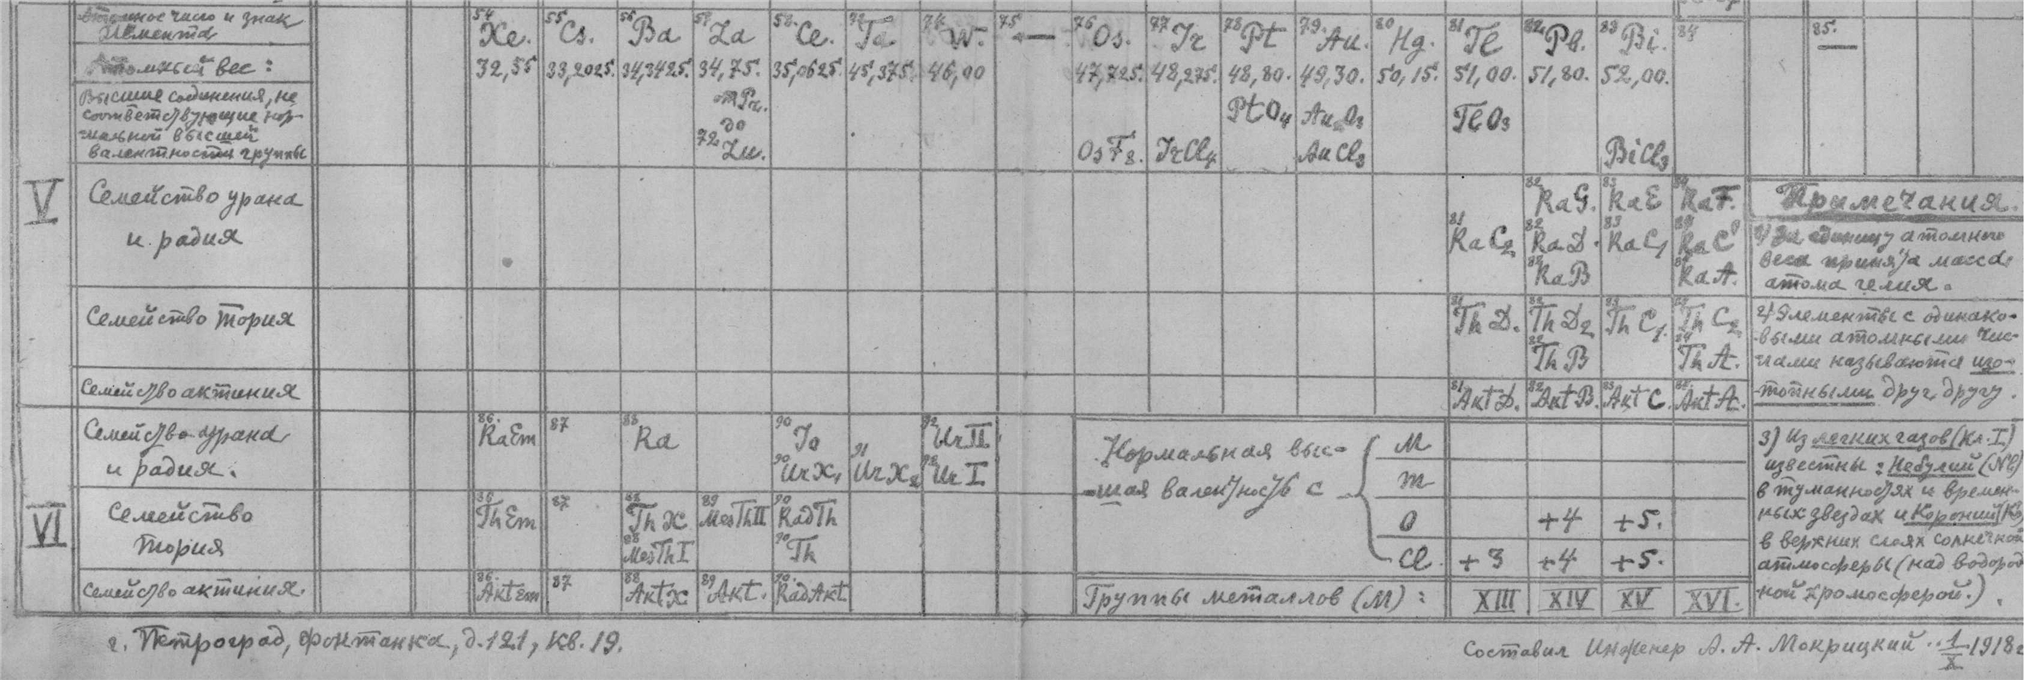 Атомное число и знак элемента 54 Xe. 55 Cs. 56 Ba 57 La 58 Ce. 73 Ta 74 W. 75 — 76 Os. 77 Ir 78 Pt 79 Au. 80 Hg. 81 Tl 82 Pb. 83 Bi. 84 85. —
Атомный вес: 32,55 33,2025. 34,3425. 34,75. 35,0625. 45,375. 46,00 47,725. 48,275. 48,80. 49,30. 50,15. 51,00. 51,80. 52,00.
Высшие соединения, не
соответствующие нор-
мальной высшей
валентности группы
от Pr.
до
72 Lu.
OsF8. IrCl4 PtO4 Au2O3 AuCl3 TlO3 BiCl3
V
Семейство урана
и радия
82 RaG. 83 RaE 84 RaF.
81 RaC2 82 RaD. 83 RaC1 84 RaC'
82 RaB 84 RaA.
Семейство тория
81 ThD. 82 ThD2 83 ThC1. 84 ThC2
82 ThB 84 ThA.
Семейство актиния
81 AktD. 82 AktB. 83 AktC. 84 AktA.
Примечания.
1) За единицу атомного
веса принята масса
атома гелия.
2) Элементы с одинако-
выми атомными чис-
лами называются изо-
топными друг другу.
3) Из легких газов (Кл. I)
известны: Небулий (Nb)
в туманностях и времен-
ных звездах и Короний (Ko)
в верхних слоях солнечной
атмосферы (над водород
ной хромосферой.).
VI
Семейство урана
и радия.
86. RaEm 87 88 Ra 90 Io 92 UrII
90 UrX1 91 UrX2 92 UrI
Семейство
тория
86 ThEm 87 88 ThX 89 MesThII 90 RadTh
88 MesThI 90 Th
Семейство актиния.
86. AktEm 87 88 AktX 89 Akt. 90. RadAkt
Нормальная выс-
шая валентность с
M
m
O +4 +5.
Cl +3 +4 +5.
Группы металлов (M): XIII XIV XV XVI.
г. Петроград, Фонтанка, д. 121, кв. 19.
Составил Инженер А. А. Мокрицкий. 1/X 1918 г